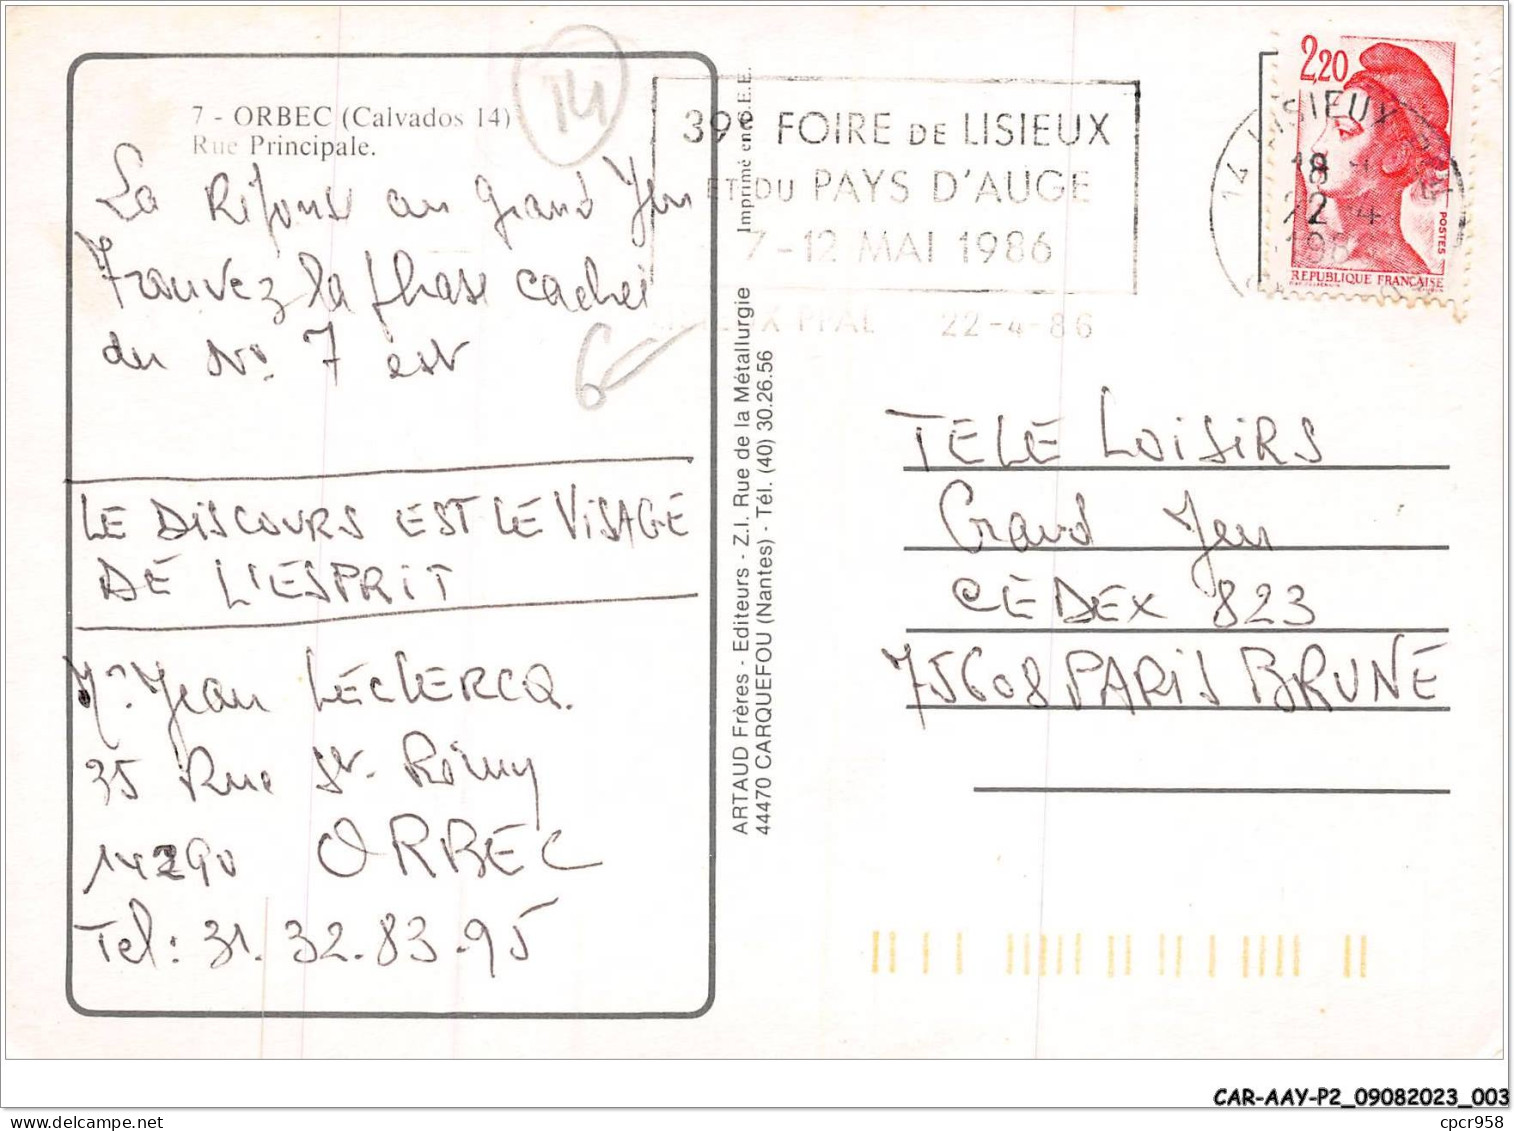 7 - ORBEC (Calvados 14)
Rue Principale.
14
La Réponse au grand Jeu
Trouvez la phase cachée
du No. 7 est
6
LE DISCOURS EST LE VISAGE
DE L'ESPRIT
Mr Jean LÉCLERCQ.
35 Rue St. Rémy
14290 ORBEC
Tel: 31.32.83.95
Imprimé en C.E.E.
ARTAUD Frères - Editeurs - Z.I. Rue de la Métallurgie
44470 CARQUEFOU (Nantes) - Tél. (40) 30.26.56
39e FOIRE DE LISIEUX
ET DU PAYS D'AUGE
7-12 MAI 1986
LISIEUX PPAL 22-4-86
14 LISIEUX
18 H
22-4
1986
2,20
POSTES
REPUBLIQUE FRANÇAISE
TELE LOISIRS
Grand Jeu
CEDEX 823
75608 PARIS BRUNE
CAR-AAY-P2_09082023_003
www.delcampe.net
cpcr958